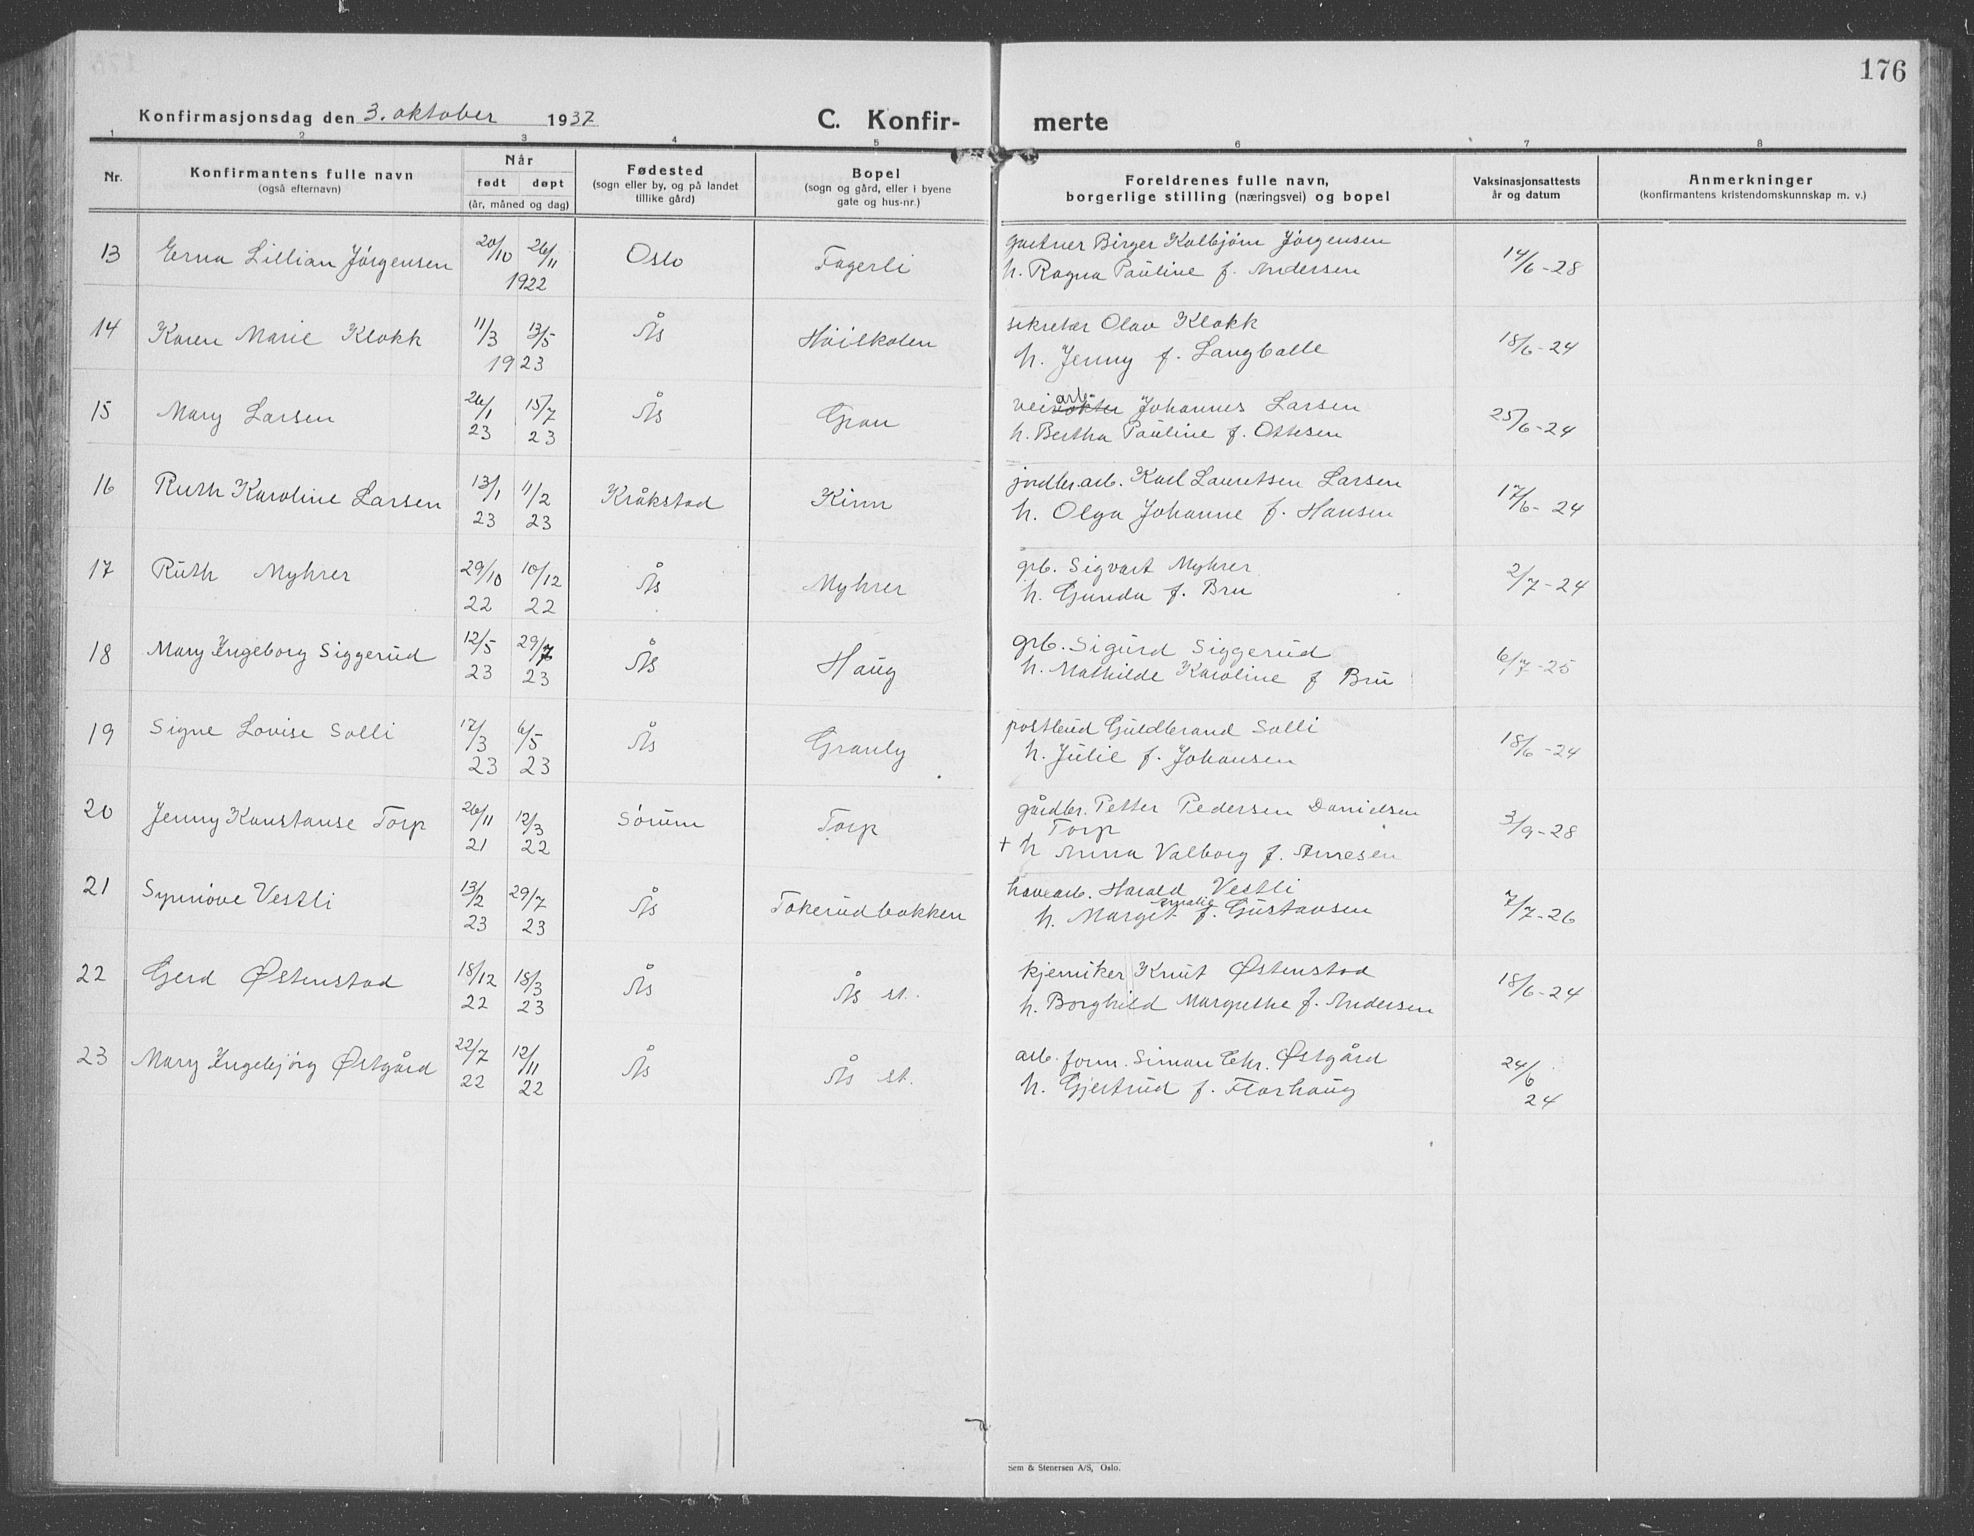 176
Konfirmasjonsdag den 3. oktober 1937 C. Konfir- merte
1 2 3 4 5 6 7 8
Nr. Konfirmantens fulle navn (også efternavn) Når født døpt (år, måned og dag) Fødested (sogn eller by, og på landet tillike gård) Bopel (sogn og gård, eller i byene gate og hus-nr.) Foreldrenes fulle navn, borgerlige stilling (næringsvei) og bopel Vaksinasjonsattests år og datum Anmerkninger (konfirmantens kristendomskunnskap m. v.)
13 Erna Lillian Jørgensen 20/10 26/11 1922 Oslo Fagerli gartner Birger Kolbjørn Jørgensen 14/6-28
h. Ragna Pauline f. Andersen
14 Karen Marie Klokk 11/3 13/5 1923 Ås Høilkolen sekretær Olav Klokk 18/6-24
h. Jenny f. Langballe
15 Mary Larsen 26/1 23 15/7 23 Ås Gran veivokter arb. Johannes Larsen 25/6-24
h. Bertha Pauline f. Ottesen
16 Ruth Karoline Larsen 13/1 23 11/2 23 Kråkstad Kinn jordbr.arb. Karl Lauretsen Larsen 17/6-24
h. Olga Johanne f. Hansen
17 Ruth Myhrer 29/10 22 10/12 22 Ås Myhrer grb. Sigvart Myhrer 2/7-24
h. Gunda f. Bru
18 Mary Ingeborg Siggerud 12/5 23 29/7 23 Ås Haug grb. Sigurd Siggerud 6/7-25
h. Mathilde Karoline f Bru
19 Signe Lovise Solli 17/3 23 6/5 23 Ås Granly postbud Guldbrand Solli 18/6-24
h. Julie f. Johansen
20 Jenny Konstanse Torp 26/11 21 12/3 22 Sørum Torp gårdbr. Petter Pedersen Danielsen 3/9-28
Torp
+ h Anna Valborg f. Anresen
21 Synnøve Vestli 13/2 23 29/7 23 Ås Tokerudbakken havearb. Harald Vestli 7/7-26
h. Margit Amalie f. Gustavsen
22 Gerd Østenstad 18/12 22 18/3 23 Ås Ås st. kjemiker Knut Østenstad 18/6-24
h. Borghild Margrethe f. Andersen
23 Mary Ingebjørg Østgård 22/7 22 12/11 22 Ås Ås st. arb. form. Simon Chr. Østgård 24/6 24
h. Gjertrud f. Florhaug
Sem & Stenersen A/S, Oslo.